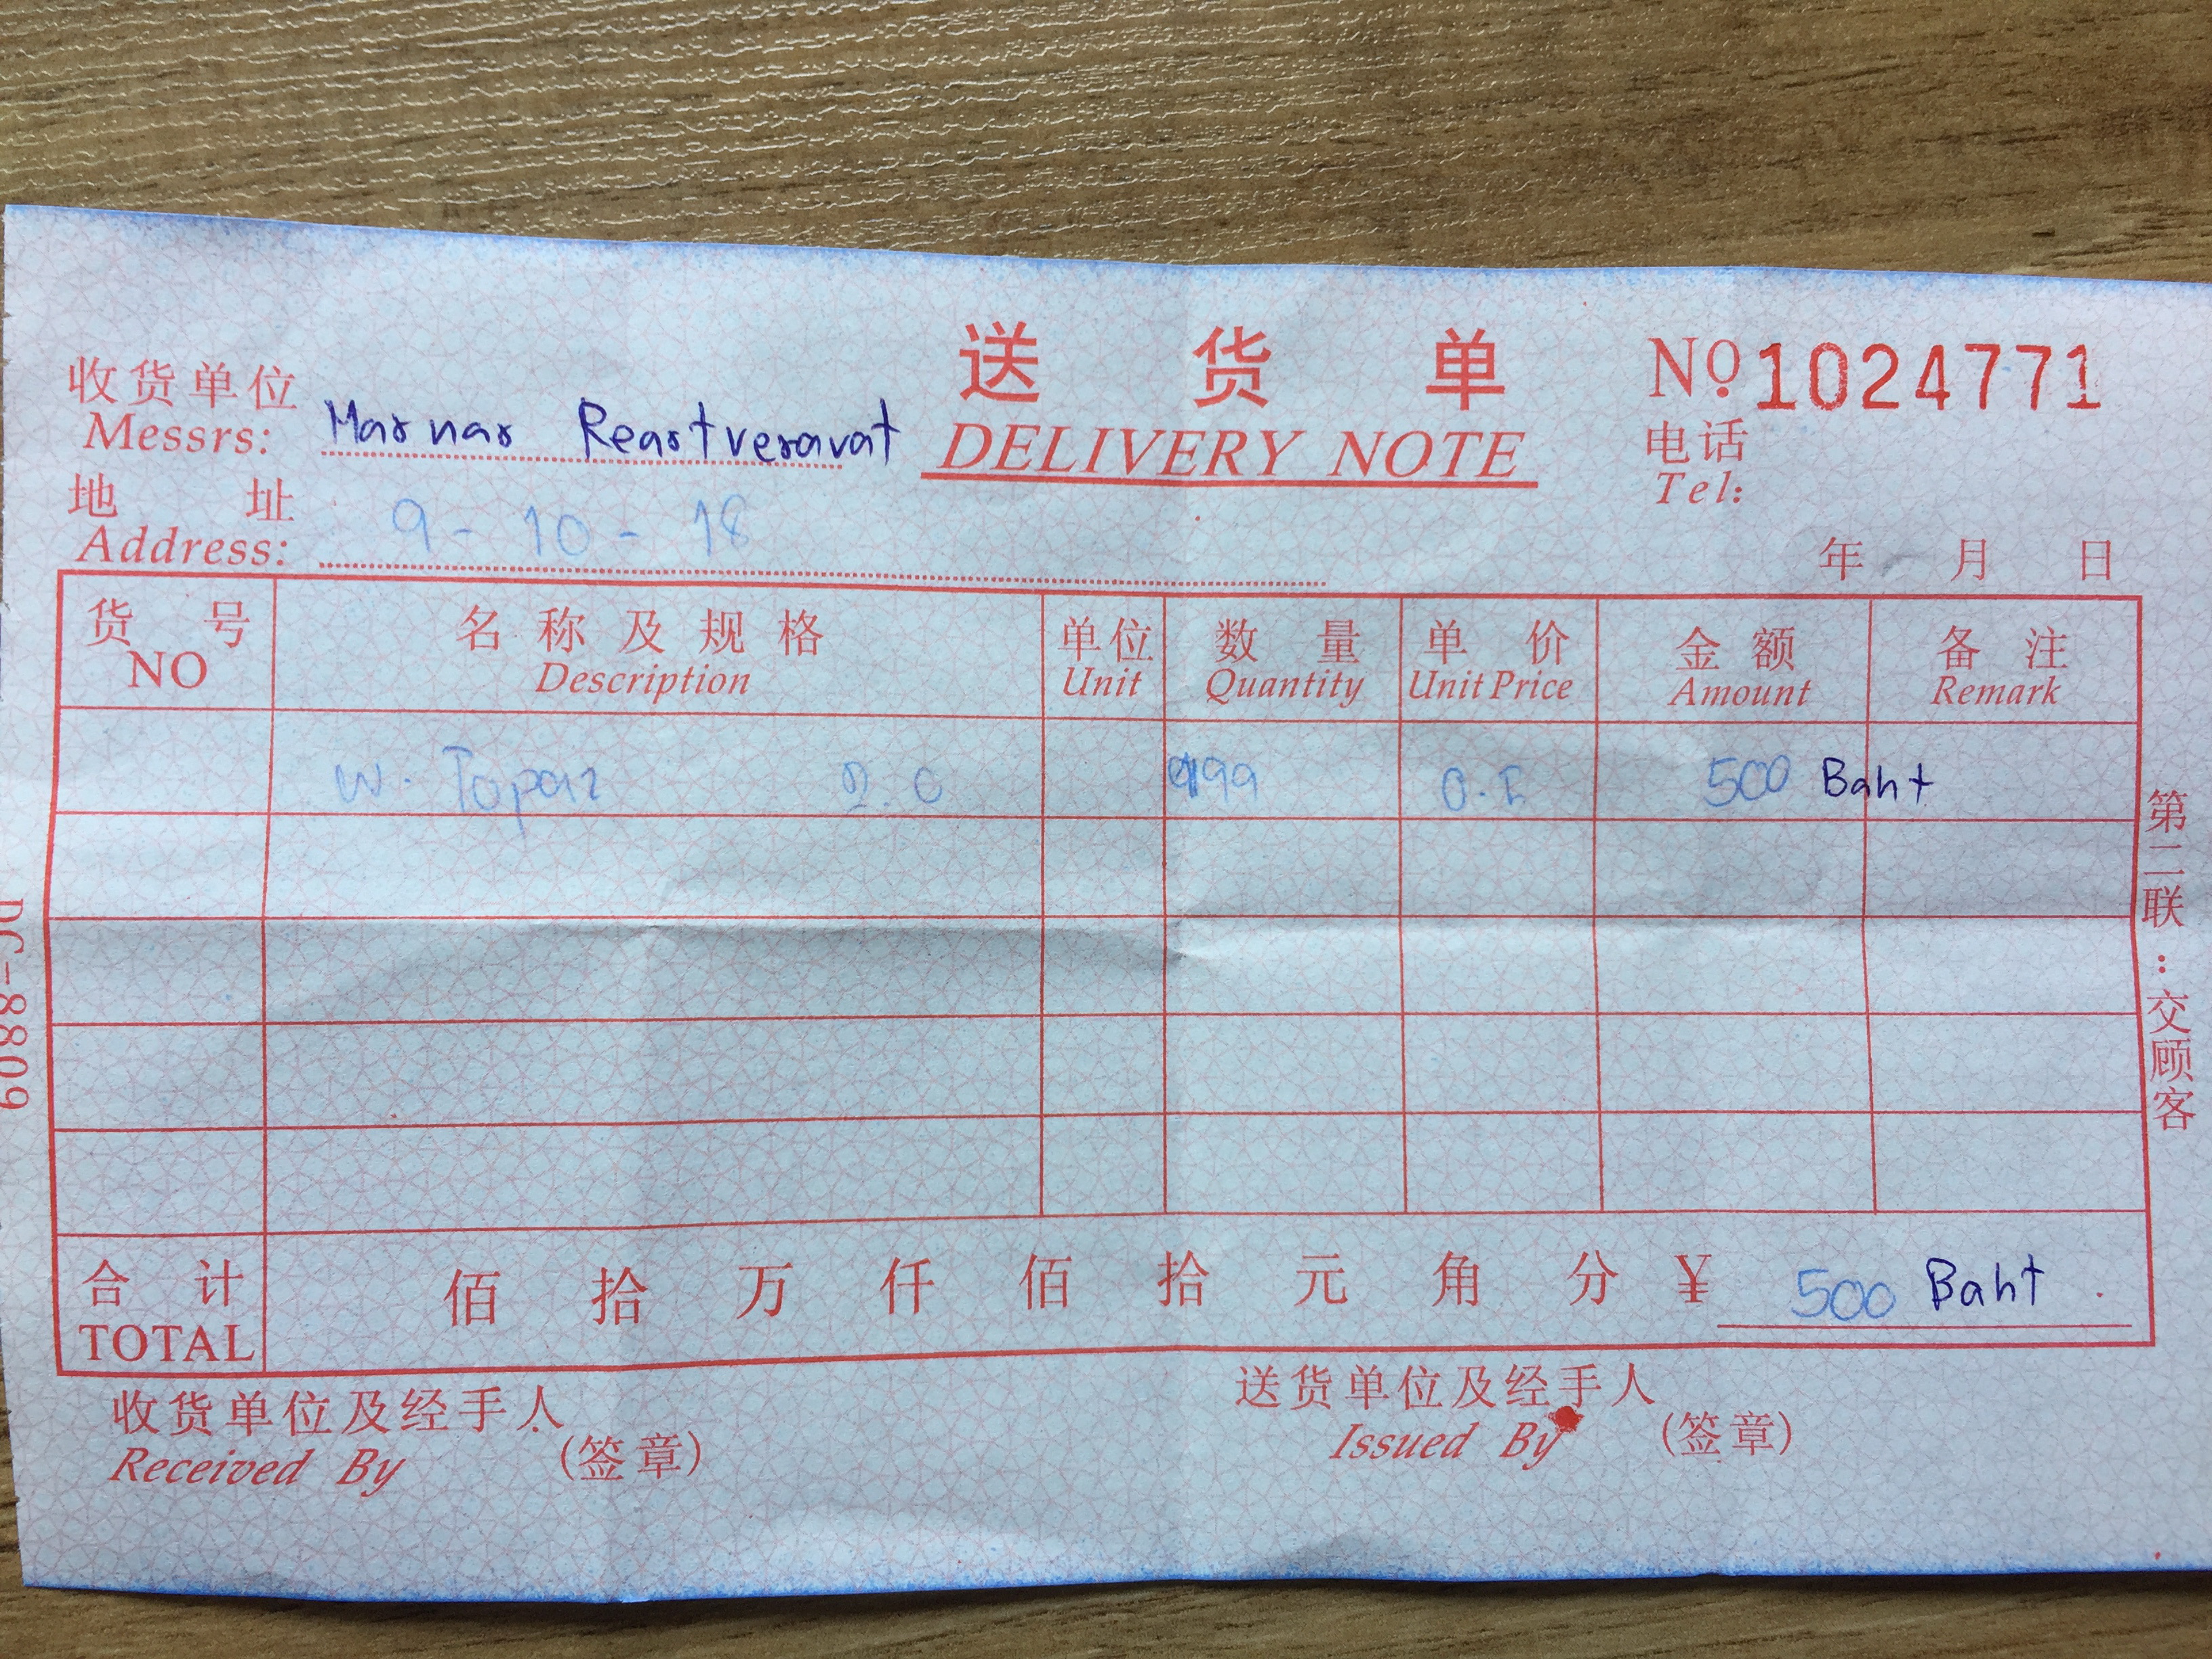 送货单
DELIVERY NOTE
No 1024771
收货单位
Messrs: Mar nar Reartveravat
电话
Tel:
地址
Address: 9 - 10 - 18
年 月 日
货号 名称及规格 单位 数量 单价 金额 备注
NO Description Unit Quantity Unit Price Amount Remark
W. Topaz 500 Baht
合计 佰 拾 万 仟 佰 拾 元 角 分 ¥ 500 Baht
TOTAL
收货单位及经手人 (签章)
Received By
送货单位及经手人 (签章)
Issued By
第二联:交顾客
-8809